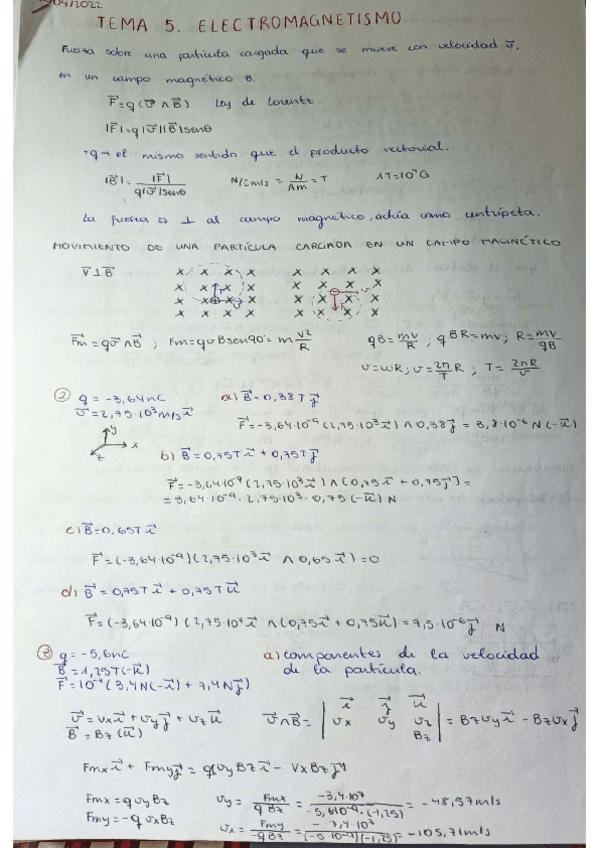 04/2022
TEMA 5. ELECTROMAGNETISMO
Fuerza sobre una partícula cargada que se mueve con velocidad v⃗,
en un campo magnético B.
F⃗=q(v⃗ ∧ B⃗) Ley de Lorentz
|F⃗|=q|v⃗||B⃗|senθ
+q→ el mismo sentido que el producto vectorial.
|B⃗|= |F⃗| / q|v⃗|senθ N/C m/s = N/Am = T 1T=10⁴G
La fuerza es ⊥ al campo magnético, actúa como centrípeta.
MOVIMIENTO DE UNA PARTÍCULA CARGADA EN UN CAMPO MAGNÉTICO
V⃗⊥B⃗
F⃗m=qv⃗∧B⃗ ; Fm=qvBsen90°=m v²/R qB=mv/R ; qBR=mv; R=mv/qB
v=ωR; v=2π/T R ; T=2πR/v
② q=-3,64nC a) B⃗=0,38T j⃗
v⃗=2,75·10³m/s i⃗
F⃗=-3,64·10⁻⁹(2,75·10³i⃗)∧0,38j⃗ = 3,8·10⁻⁶N(-k⃗)
y
x
z
b) B⃗=0,75T i⃗+0,75T j⃗
F⃗=-3,64·10⁻⁹(2,75·10³i⃗)∧(0,75i⃗+0,75j⃗)=
=3,64·10⁻⁹·2,75·10³·0,75(-k⃗)N
c) B⃗=0,65T i⃗
F⃗=(-3,64·10⁻⁹)(2,75·10³i⃗ ∧0,65i⃗)=0
d) B⃗=0,75T i⃗+0,75T k⃗
F⃗=(-3,64·10⁻⁹)(2,75·10³i⃗ ∧(0,75i⃗+0,75k⃗)=7,5·10⁻⁶j⃗ N
q=-5,6nC a) componentes de la velocidad
B⃗=1,25T(-k⃗) de la partícula.
F⃗=10⁻⁷(3,4N(-i⃗)+7,4Nj⃗)
v⃗=vxi⃗+vyj⃗+vzk⃗ v⃗∧B⃗= | i⃗ j⃗ k⃗
B⃗=Bz(k⃗) vx vy vz | =Bzvyi⃗-Bzvxj⃗
Bz
Fmxi⃗+Fmyj⃗=qvyBzi⃗-VxBzj⃗
Fmx=qvyBz vy=Fmx/qBz = -3,4·10⁻⁷ / -5,6·10⁻⁹·(-1,25) = -48,57m/s
Fmy=-qvxBz vx=Fmy/-qBz = -7,4·10⁻⁷ / (-5·10⁻⁹)(-1,25) = -105,71m/s